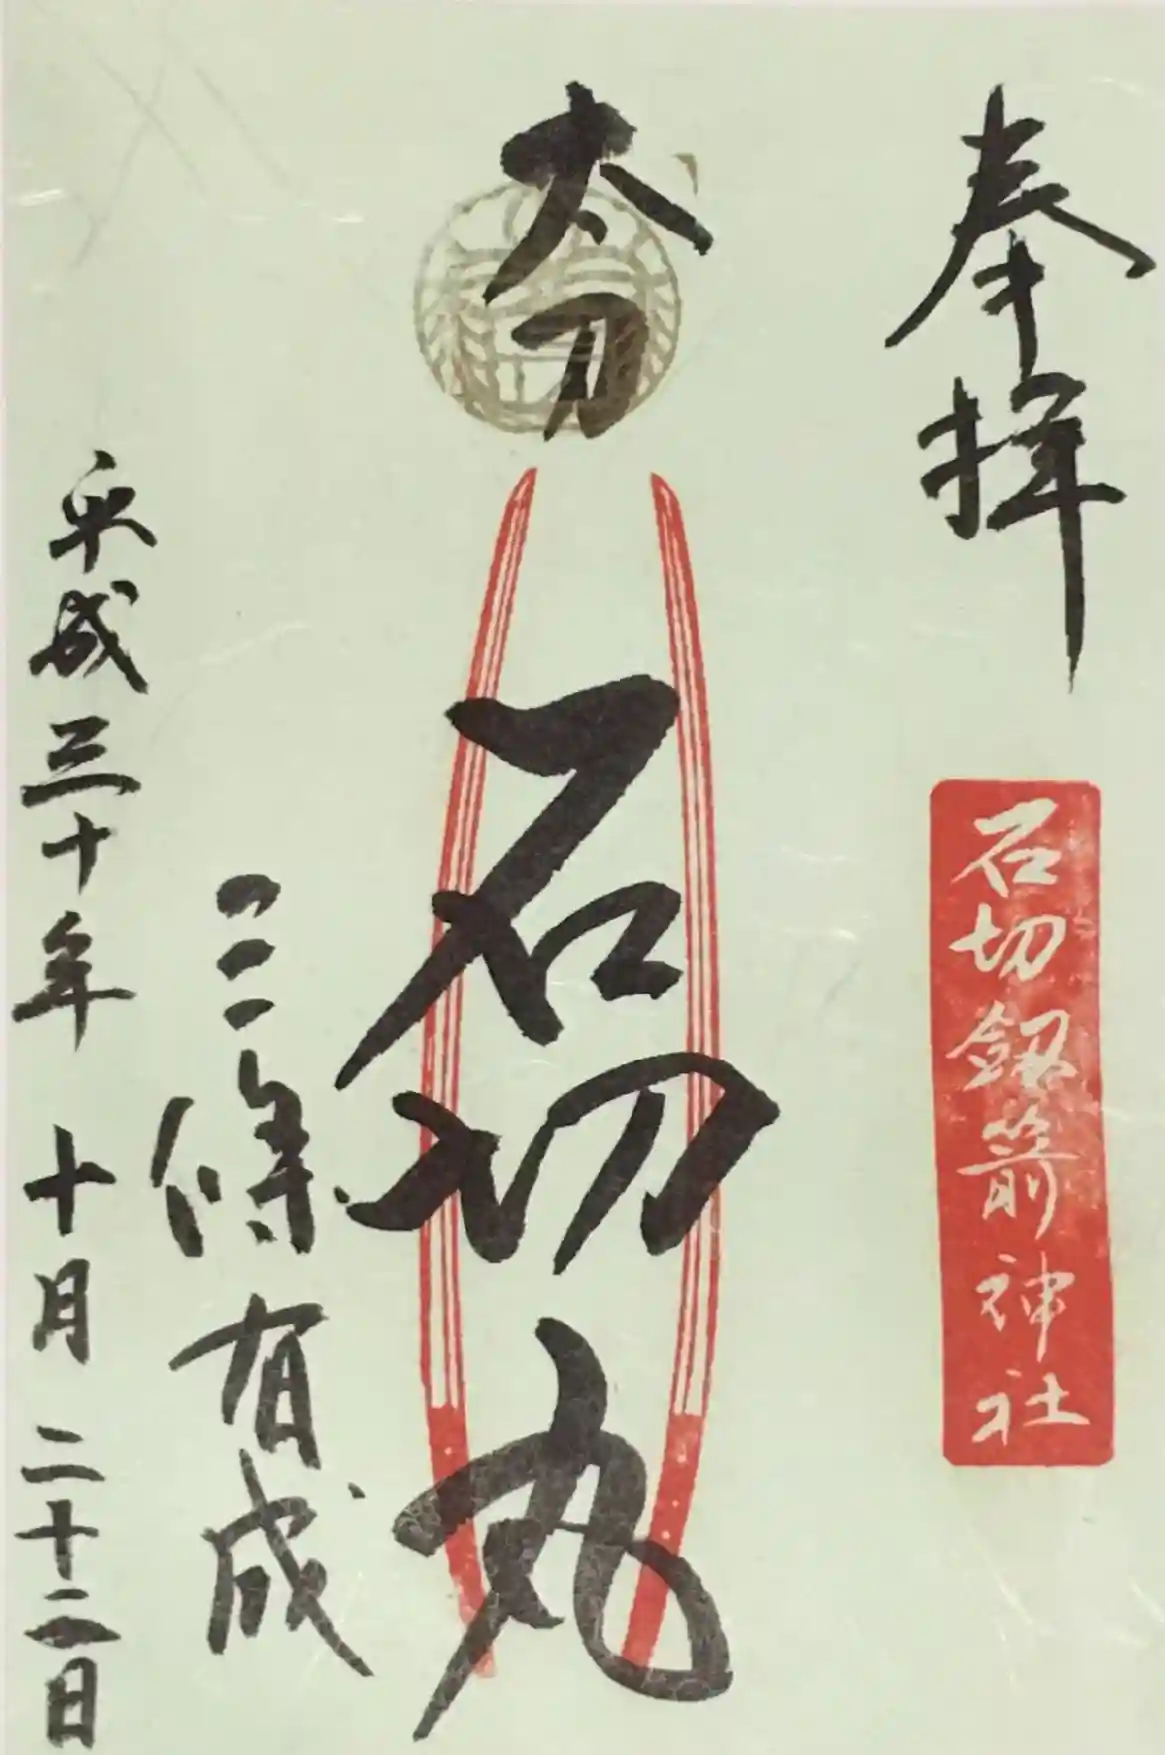 奉拝
石切劔箭神社
太刀
石切丸
三條有成
平成三十年 十月 二十二日